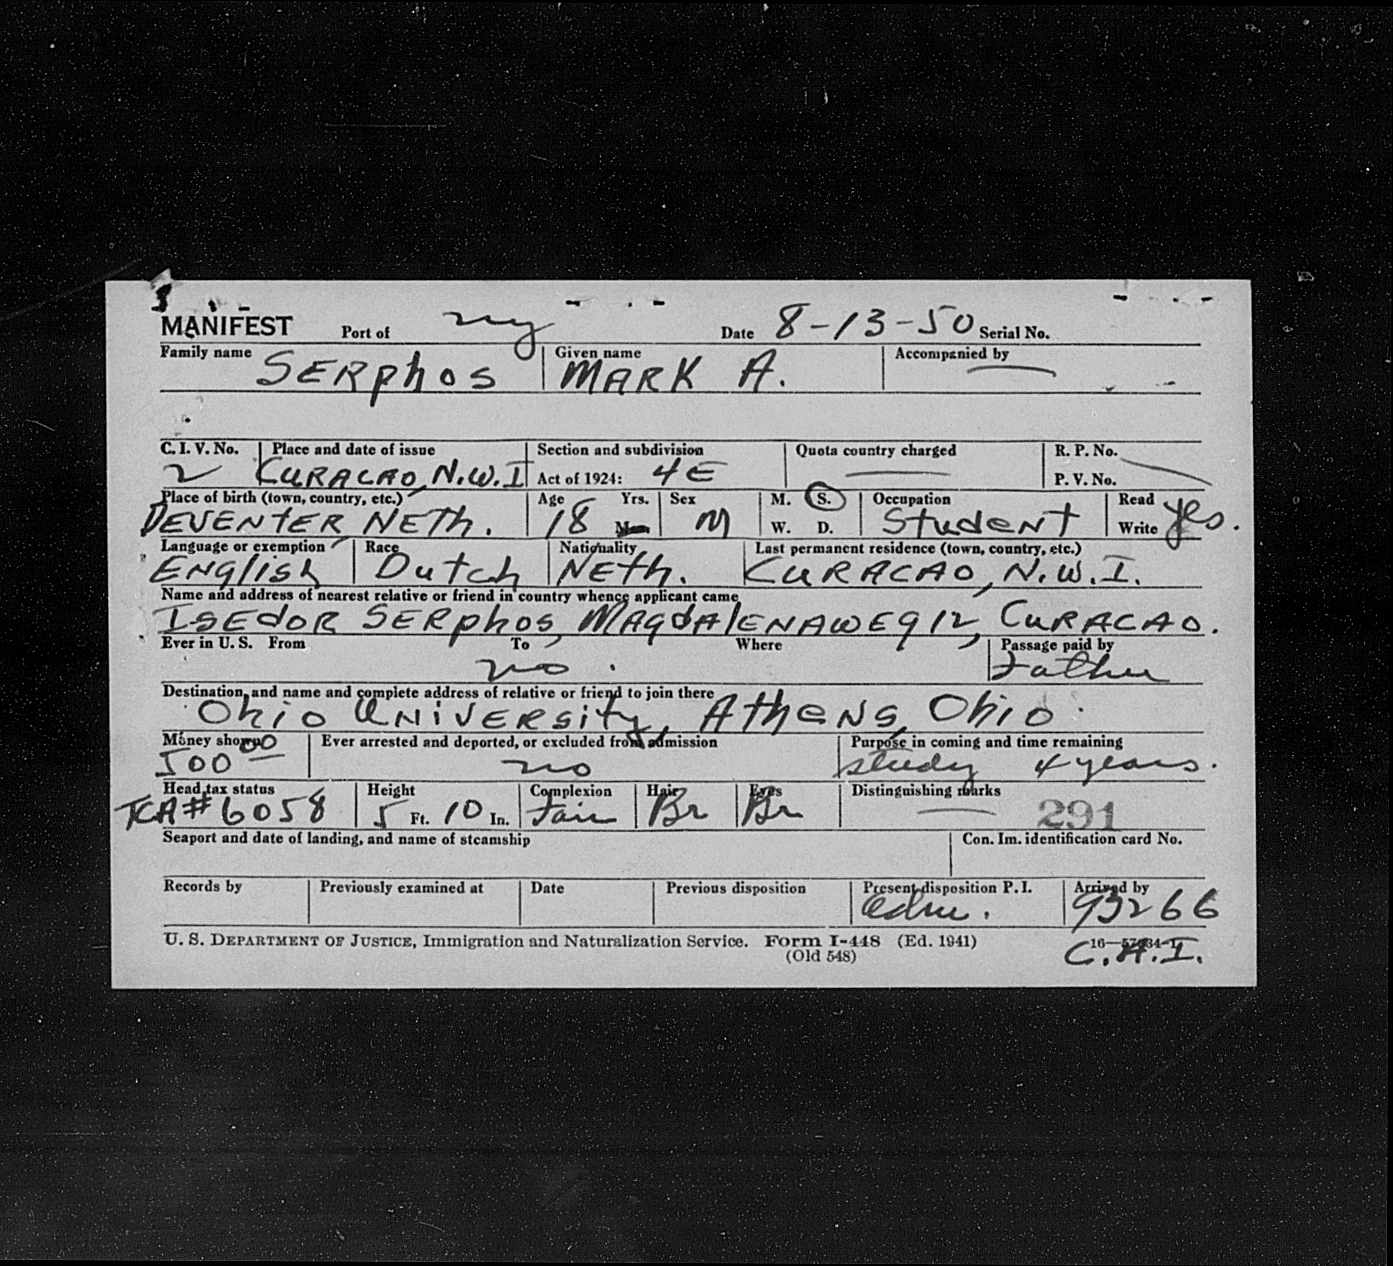 MANIFEST Port of ny Date 8-13-50 Serial No.
Family name SERphos Given name MARK A. Accompanied by —
C. I. V. No. Place and date of issue Section and subdivision Quota country charged R. P. No.
2 CURACAO, N.W.I Act of 1924: 4E — P. V. No.
Place of birth (town, country, etc.) Age Yrs. Sex M. S. Occupation Read
DEVENTER NETh. 18 M W. D. Student Write yes.
Language or exemption Race Nationality Last permanent residence (town, country, etc.)
English Dutch NETh. CURACAO, N.W.I.
Name and address of nearest relative or friend in country whence applicant came
ISEdOR SERphos, MAgdAlENAWEg 12, CURACAO.
Ever in U. S. From To Where Passage paid by
no. Father
Destination, and name and complete address of relative or friend to join there
Ohio UNIVERSity, AthENS, Ohio
Money shown Ever arrested and deported, or excluded from admission Purpose in coming and time remaining
500 00 no study 4 years.
Head tax status Height Complexion Hair Eyes Distinguishing marks
TCA# 6058 5 Ft. 10 In. Fair Br Br — 291
Seaport and date of landing, and name of steamship Con. Im. identification card No.
Records by Previously examined at Date Previous disposition Present disposition P. I. Arrived by
adm. 93266
U. S. DEPARTMENT OF JUSTICE, Immigration and Naturalization Service. Form I-448 (Ed. 1941)
(Old 548) C.A.I.